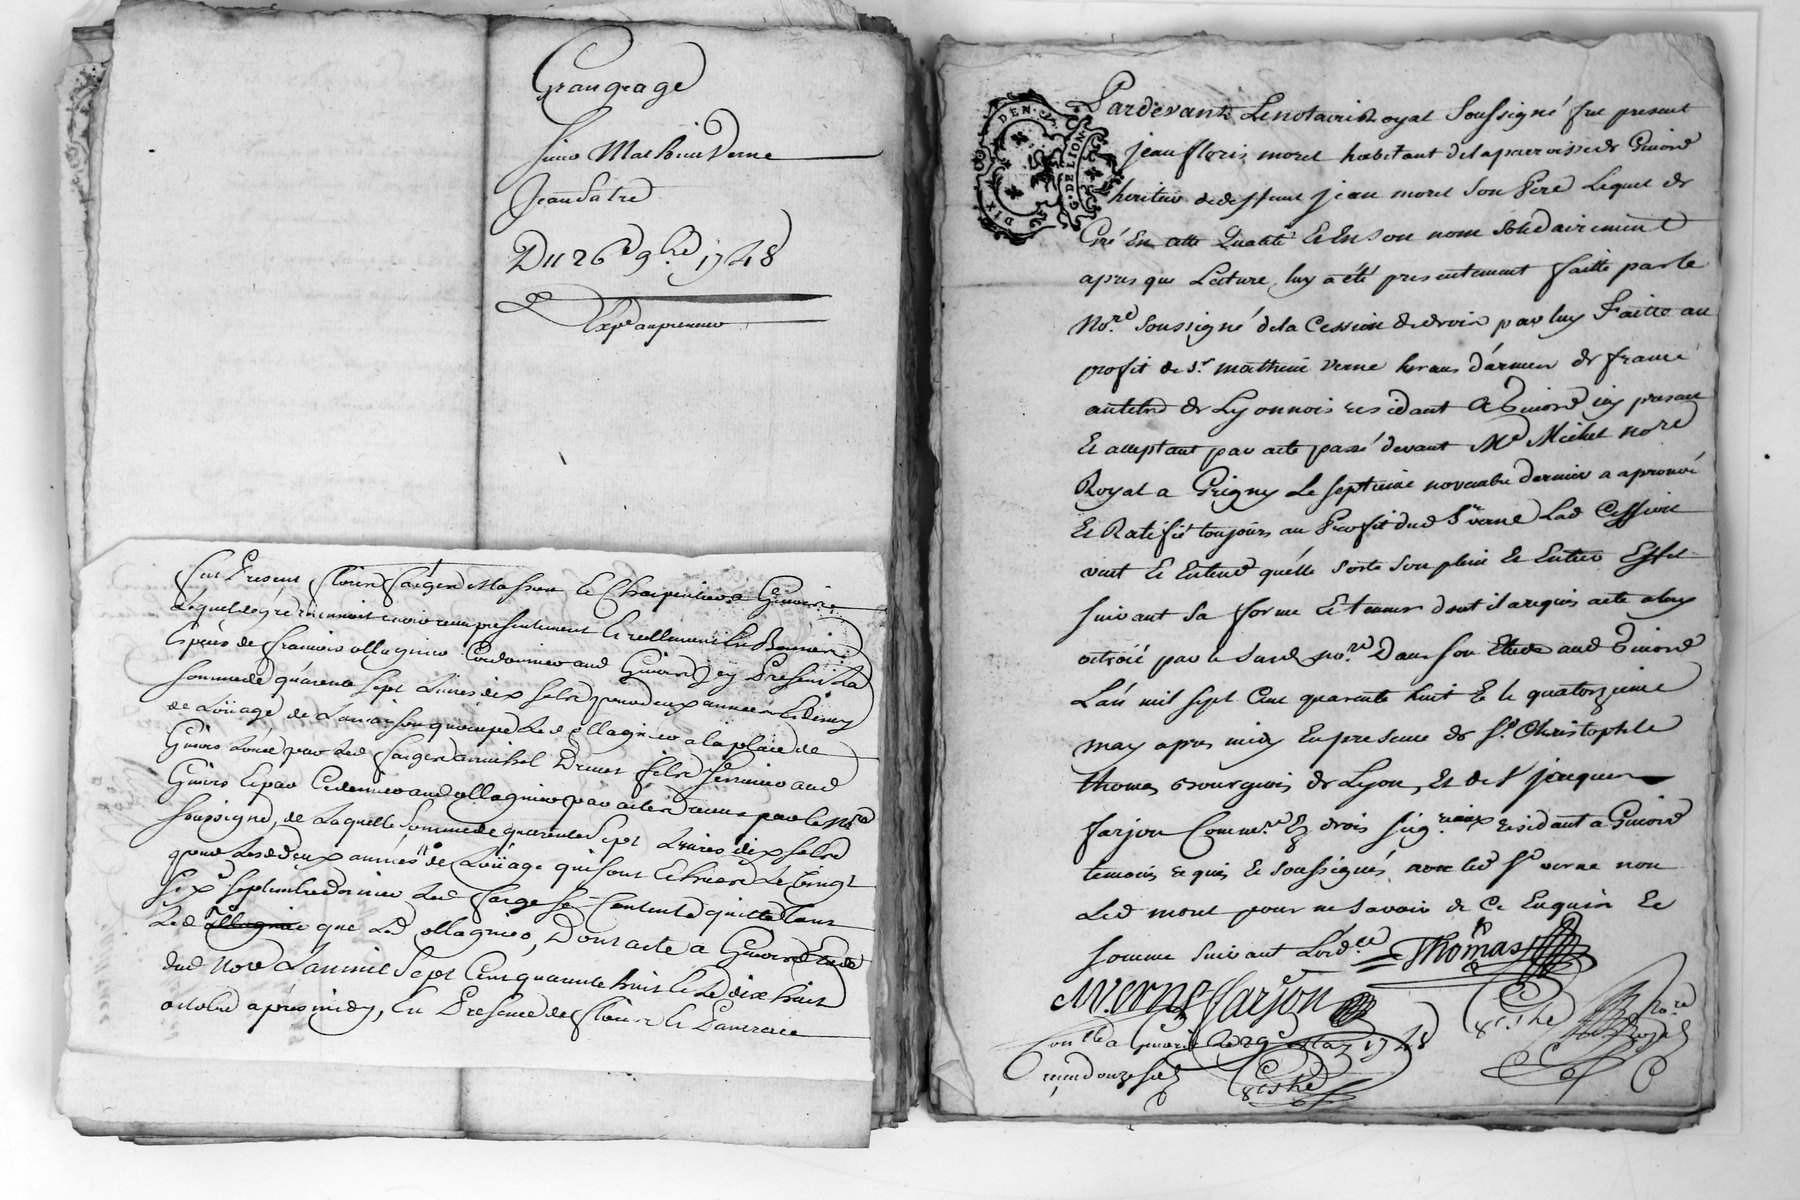 Grangeage
Sieur Mathieu Verne
Jean Satre
Du 26e 9bre 1748
Expé au preneur
Fut Present, Fleury Farge Masson et Charpentier a Givors
Lequel de gré reconnoit avoir reçeu presentement et réellement en Bonnes
Espéces de François ollagnier Cordonnier aud Givors icy Present La
somme de quarente sept Livres dix sols pour deux années et demy
de Loüage de La maison qu'occupe Led ollagnier a la place de
Givors Loüée par Led Farge a michel Drevet fils
Givors et par Ce dernier aud ollagnier par actes reçeus par le Nre
soussigné, de Laquelle somme de quarente sept Livres dix sols
pour Lesd deux années de Loüage qui sont echües Le vingt
six septembre dernier Led Farge se Contente quitte tant
Led que Led ollagnier, Dont acte a Givors Etude
dud Nore L'an mil sept Cent quarente huit et Le dix huit
octobre après midy, En Presence de
Pardevant Le notaire Royal Soussigné fut present
jean fleris moret habitant de la parroisse de Givors
heritier de deffunt jean moret son Pere Lequel de
Gré En cette Qualité Et En son nom solidairement
apres que Lecture luy a été presentement faitte par le
Nore soussigné de la Cession de droit par luy Faitte au
profit de sr. mathieu verne heraut d'armes de france
au titre de Lyonnois residant A Givors icy present
Et acceptant par acte passé devant Me Michel nore
Royal a Grigny Le septieme novembre dernier a aprouvé
Et Ratifié toujours au Proffit dud Sr verne Lad Cession
veut Et Entend quélle sorte son plein Et Entier Effet
suivant sa forme Et teneur dont il a requis acte a luy
octroié par le susd nore. Dans son Etude aud Givors
L'an mil sept Cent quarente huit Et le quatorzieme
may apres midy En presence de Sr. Christophle
Thomas Bourgeois de Lyon, Et de Sr jacques
Farjon Commre. Ez droits seigneriaux residant a Givors
temoins requis Et soussignés, avec led Sr verne non
Led moret pour ne savoir de Ce Enquis Et
sommé suivant L'ordce
Thomas
M Verne Farjon
Conllé a Givors Le 29e May 1748
reçeu douze sols
G. DE LION
DIX DEN.